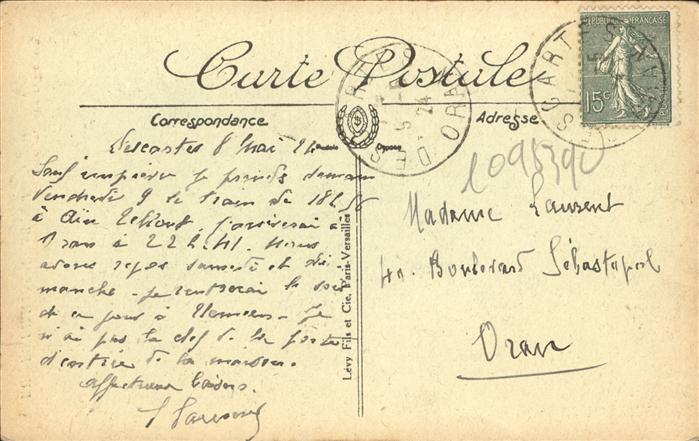 Carte Postale
RÉPUBLIQUE FRANÇAISE
15c
DESCARTES
ORAN
Correspondance
Adresse
Descartes 8 Mai 24
Sauf imprévu je prends demain
Vendredi 9 le train de 18h56
à Aïn j'arriverai à
Oran à 22h41. Nous
avons repos samedi et di
manche - je rentrerai le soir
de ce jour à Tlemcen. Je
n'ai pas la clef de la porte
d'entrée de la maison.
Affectueux baisers.
Laurent
Lévy Fils et Cie, Paris-Versailles
1095390
Madame Laurent
Boulevard Sébastopol
Oran